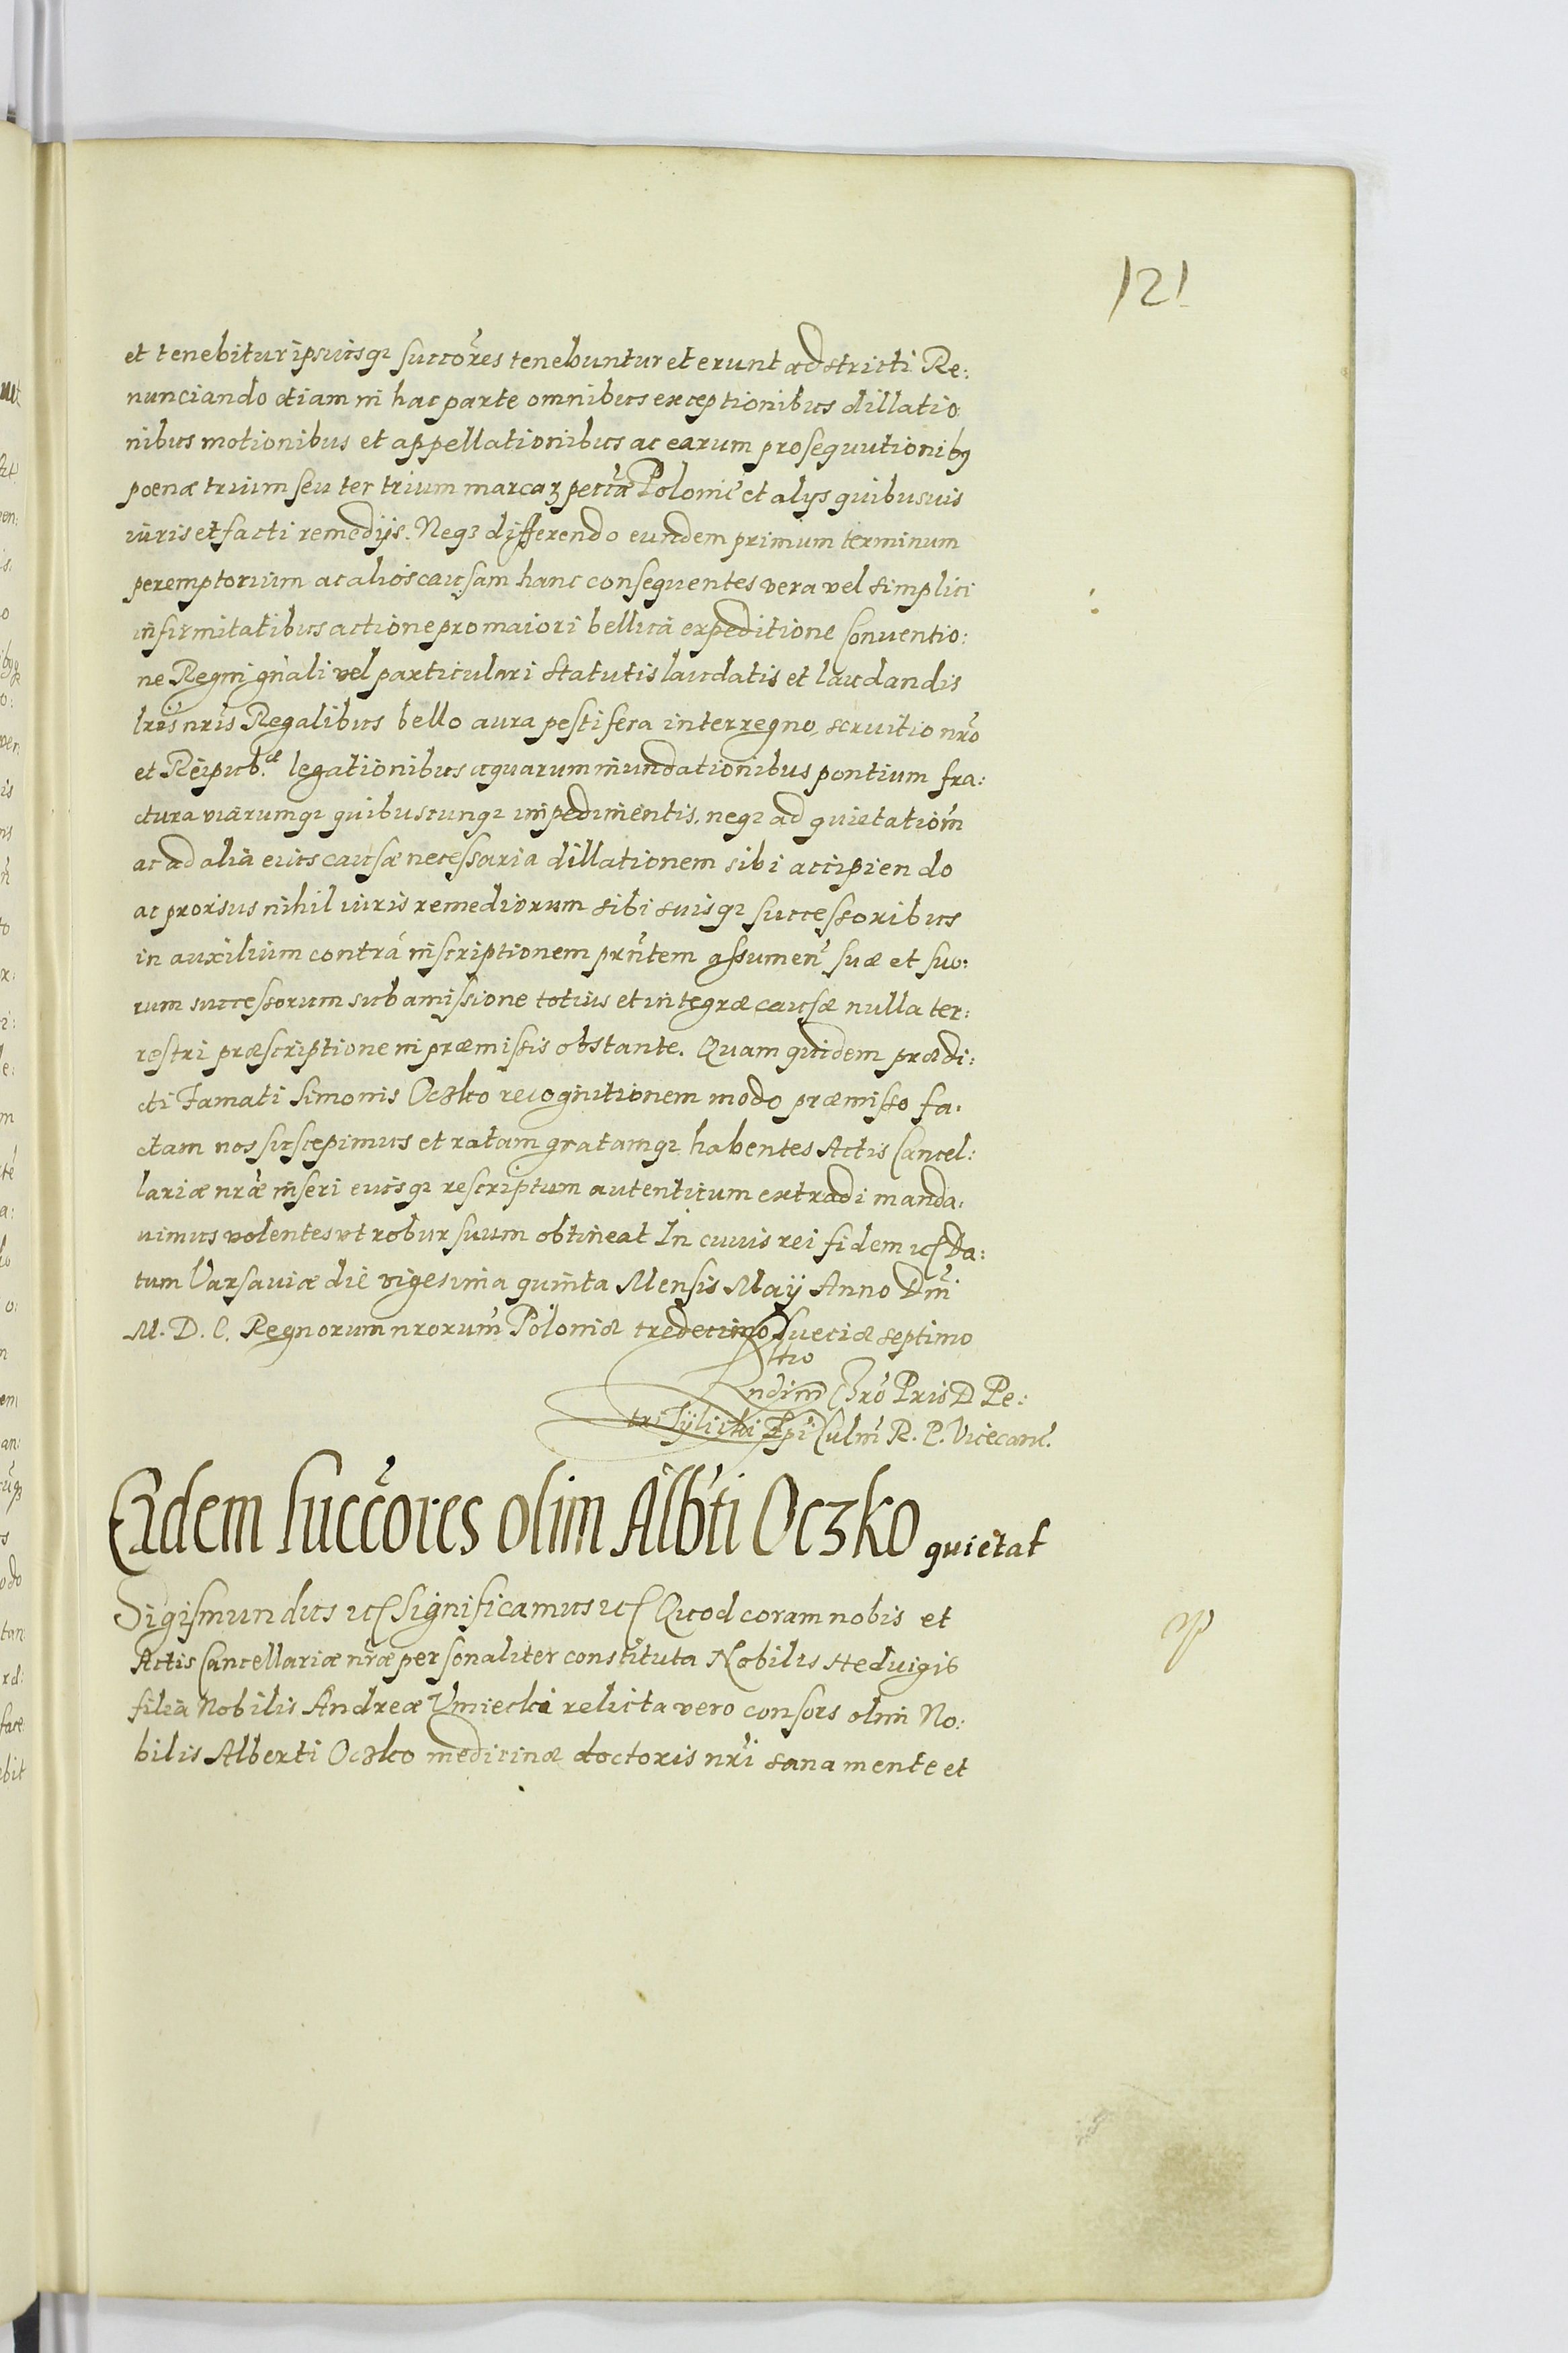 121
et tenebitur ipsiusq₃ succores tenebuntur et erunt adstricti Re:
nunciando etiam in hac parte omnibus exceptionibus dillatio
nibus motionibus et appellationibus ac earum prosequutionibꝯ
poenæ trium seu ter trium marcaꝝ peccũæ Polonic̃ et alys quibusuis
iuris et facti remedijs. Neq₃ differendo eundem primum terminum
peremptorium ac alios causam hanc consequentes vera vel simplici
infirmitatibus actione pro maiori bellica expeditione Conuentio:
ne Regni gñali vel particulari Statutis laudatis et laudandis
lris nris Regalibus bello aura pestifera interregno, seruitio nrõ
et Reipub.æ legationibus aquarum inundationibus pontium fra:
ctura viarumq₃ quibuscunq₃ impedimentis, neq₃ ad quietatiom̃
ac ad alia eius causæ necessaria dillationem sibi accipiendo
ac prorsus nihil iuris remediorum sibi suisq₃ successoribus
in auxilium contra inscriptionem prñtem assumen̄ suæ et suo:
rum successorum sub amissione totius et integræ causæ nulla ter:
restri præscriptione in præmissis obstante. Quam quidem prædi:
cti Famati Simonis Oczko recognitionem modo præmisso fa:
ctam nos suscepimus et ratam gratamq₃ habentes Actis Cancel:
lariæ nræ inseri eiusq₃ rescriptum autenticum extradi manda:
uimus volentes vt robur suum obtineat In cuius rei fidem ꝛc Da:
tum Varsauiæ die vigesima quinta Mensis May Anno Dni
M. D. C. Regnorum nrorum Poloniæ tredecimo Sueciæ septimo
Rndim Chrõ Pris D Pe:
tri Tylicki Epi Culm̃ R. P. Vicecanc̃.
Eidem succores olim Albti Oczko quietat
Sigismundus ꝛc Significamus ꝛc Quod coram nobis et
Actis Cancellariæ nræ personaliter constituta Nobilis Heduigis
filia Nobilis Andreæ Vmiecki relicta vero consors olim No:
bilis Alberti Oczko medicinæ doctoris nri sana mente et